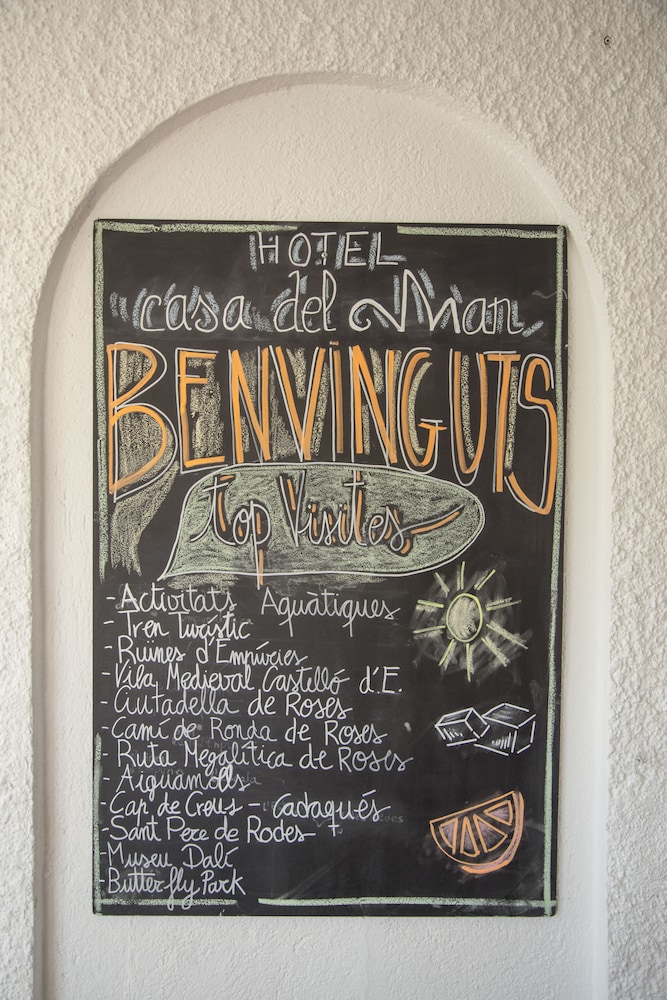 HOTEL
casa del Mar
BENVINGUTS
top Visites
- Activitats Aquàtiques
- Tren Turístic
- Ruïnes d'Empúries
- Vila Medieval Castelló d'E.
- Ciutadella de Roses
- Camí de Ronda de Roses
- Ruta Megalítica de Roses
- Aiguamolls
- Cap de Creus - Cadaqués
- Sant Pere de Rodes
- Museu Dalí
- Butterfly Park